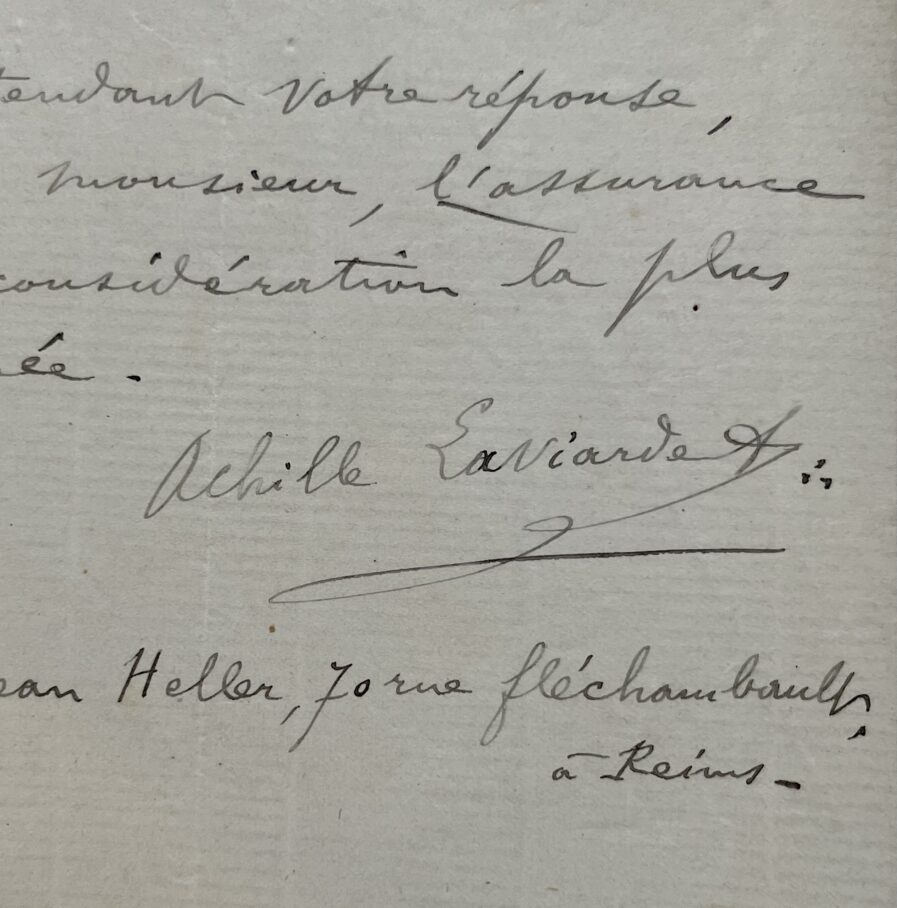 tendant votre réponse,
monsieur, l'assurance
considération la plus
ée.
Achille Laviarde
ean Heller, 70 rue fléchambault,
à Reims -